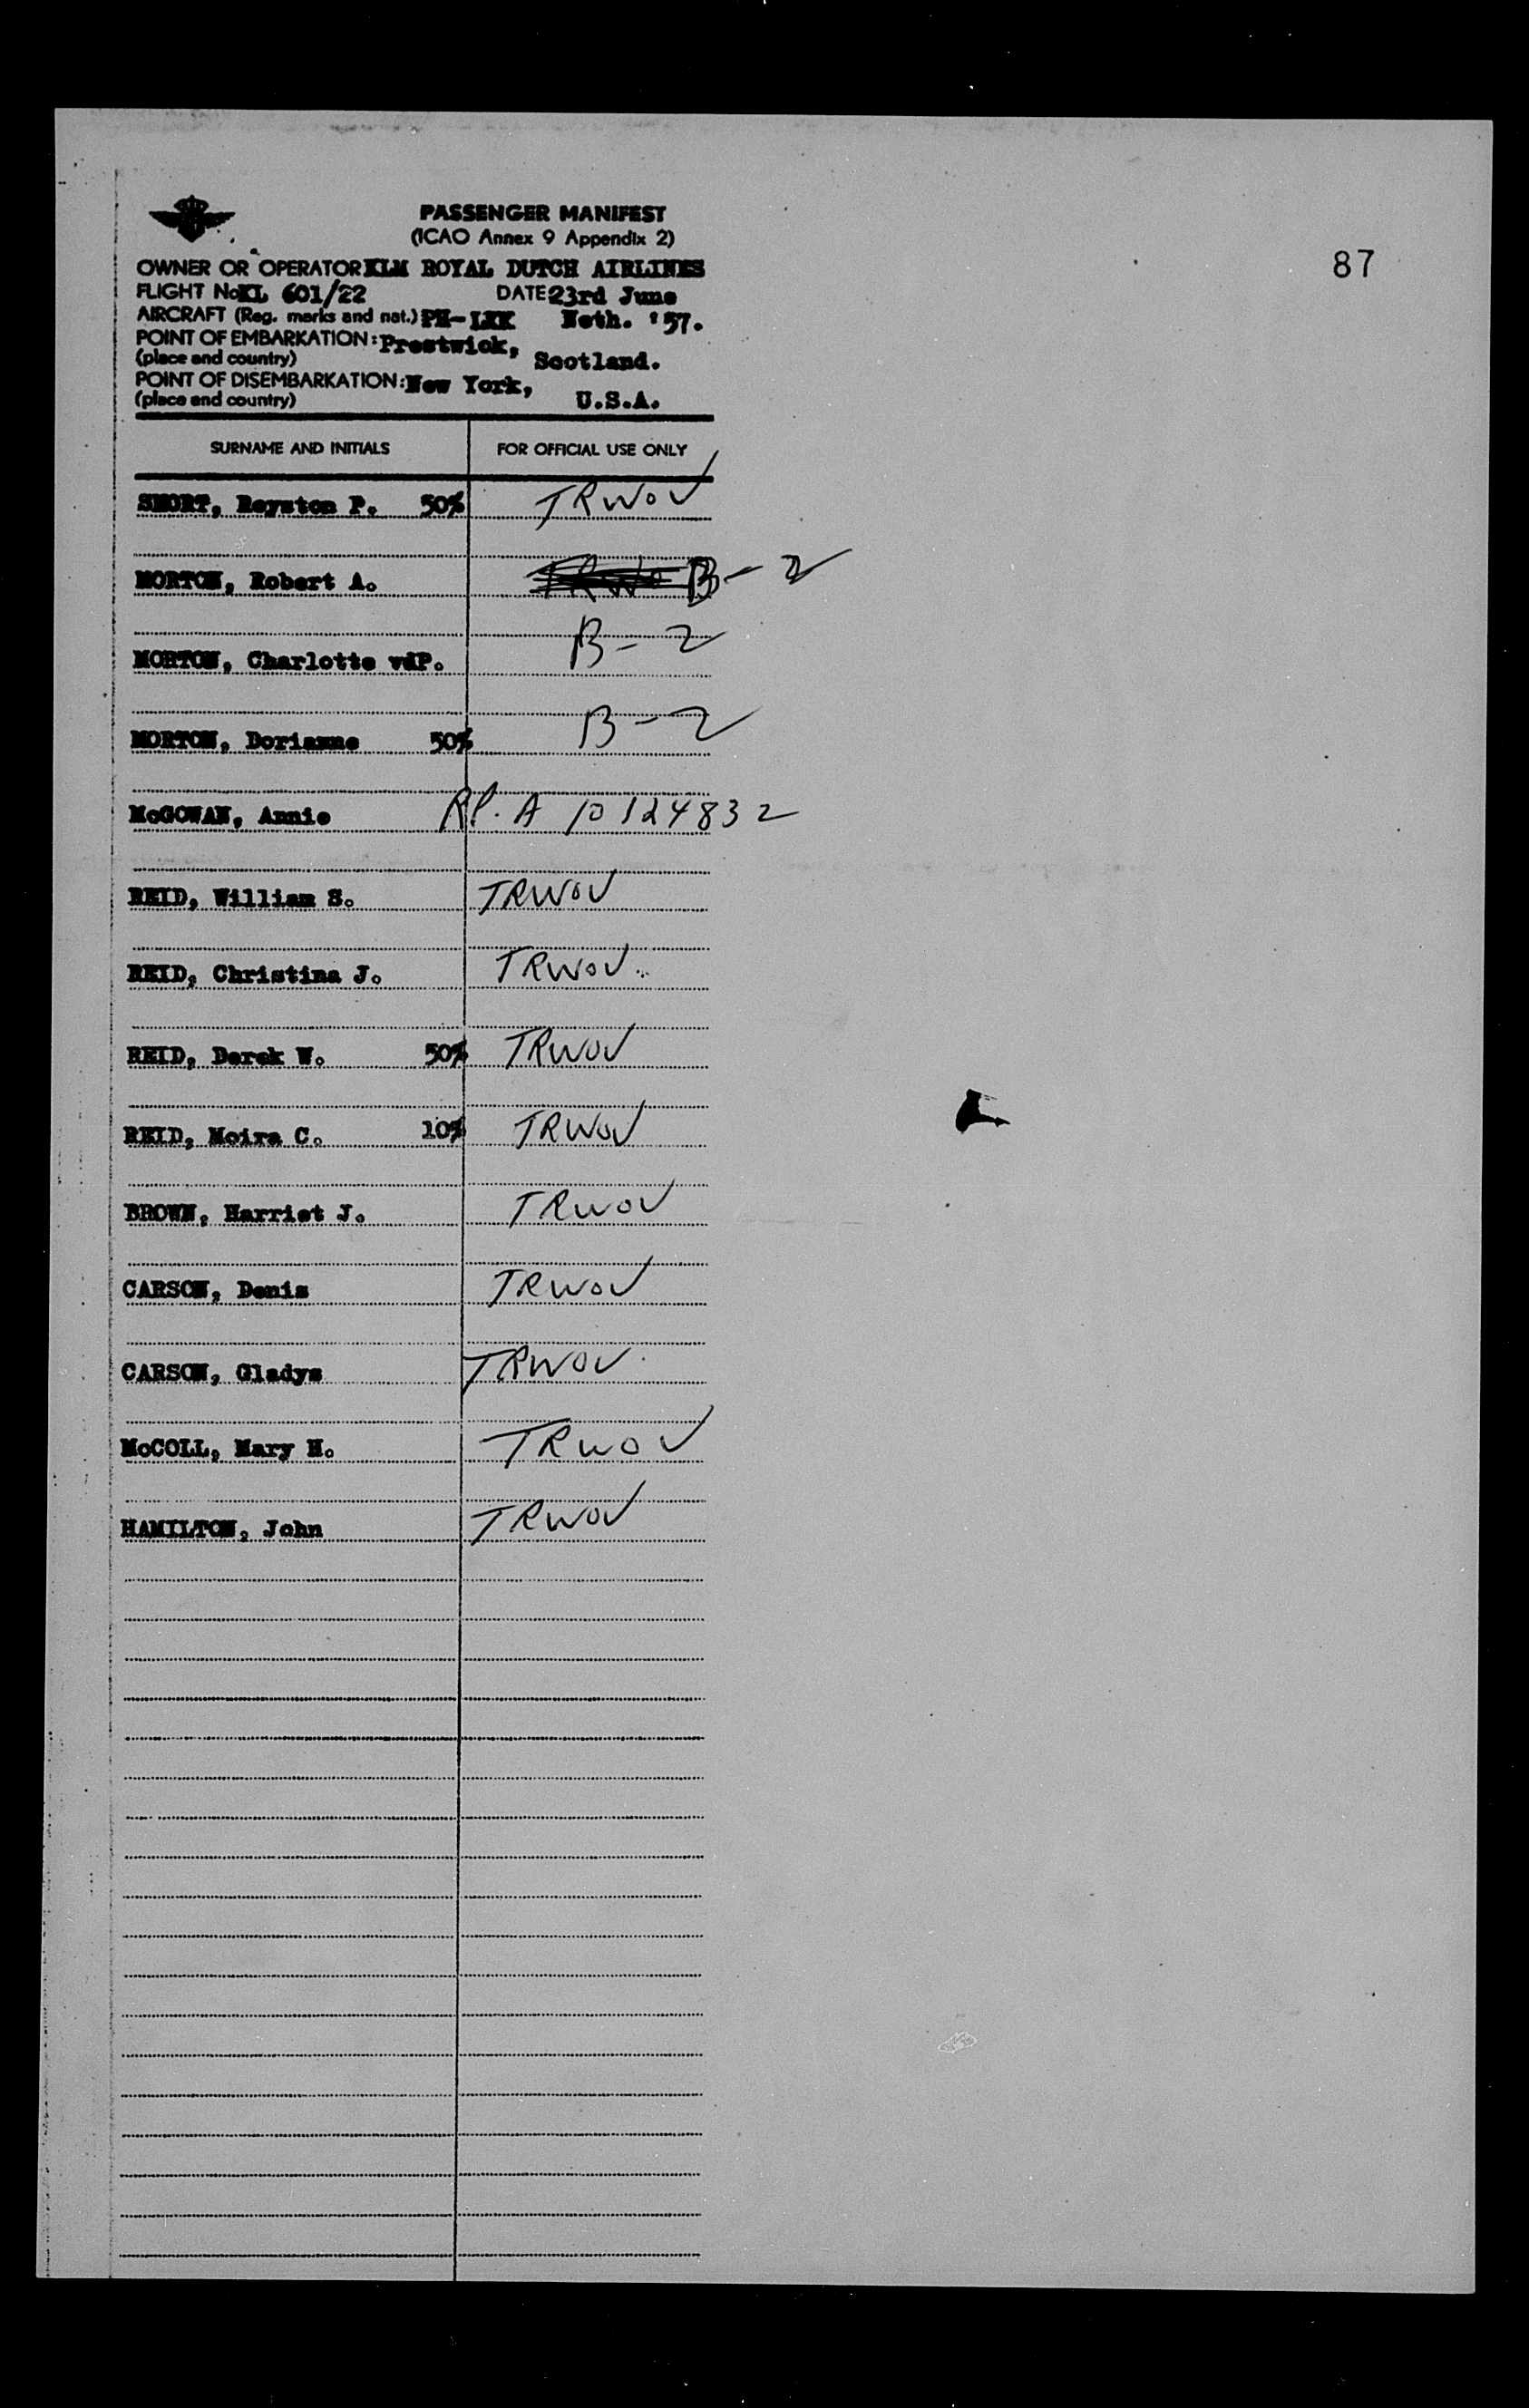 PASSENGER MANIFEST
(ICAO Annex 9 Appendix 2)
87
OWNER OR OPERATOR KLM ROYAL DUTCH AIRLINES
FLIGHT No KL 601/22 DATE 23rd June
AIRCRAFT (Reg. marks and nat.) PH-LKK Neth. '57.
POINT OF EMBARKATION: Prestwick,
(place and country) Scotland.
POINT OF DISEMBARKATION: New York,
(place and country) U.S.A.
SURNAME AND INITIALS FOR OFFICIAL USE ONLY
SHORT, Royston P. 50% TRWOV
MORTON, Robert A. TRWO B-2
MORTON, Charlotte vdP. B-2
MORTON, Dorianne 50% B-2
McGOWAN, Annie RP. A 10124832
REID, William S. TRWOV
REID, Christina J. TRWOV
REID, Derek W. 50% TRWOV
REID, Moira C. 10% TRWOV
BROWN, Harriet J. TRWOV
CARSON, Denis TRWOV
CARSON, Gladys TRWOV
McCOLL, Mary H. TRWOV
HAMILTON, John TRWOV